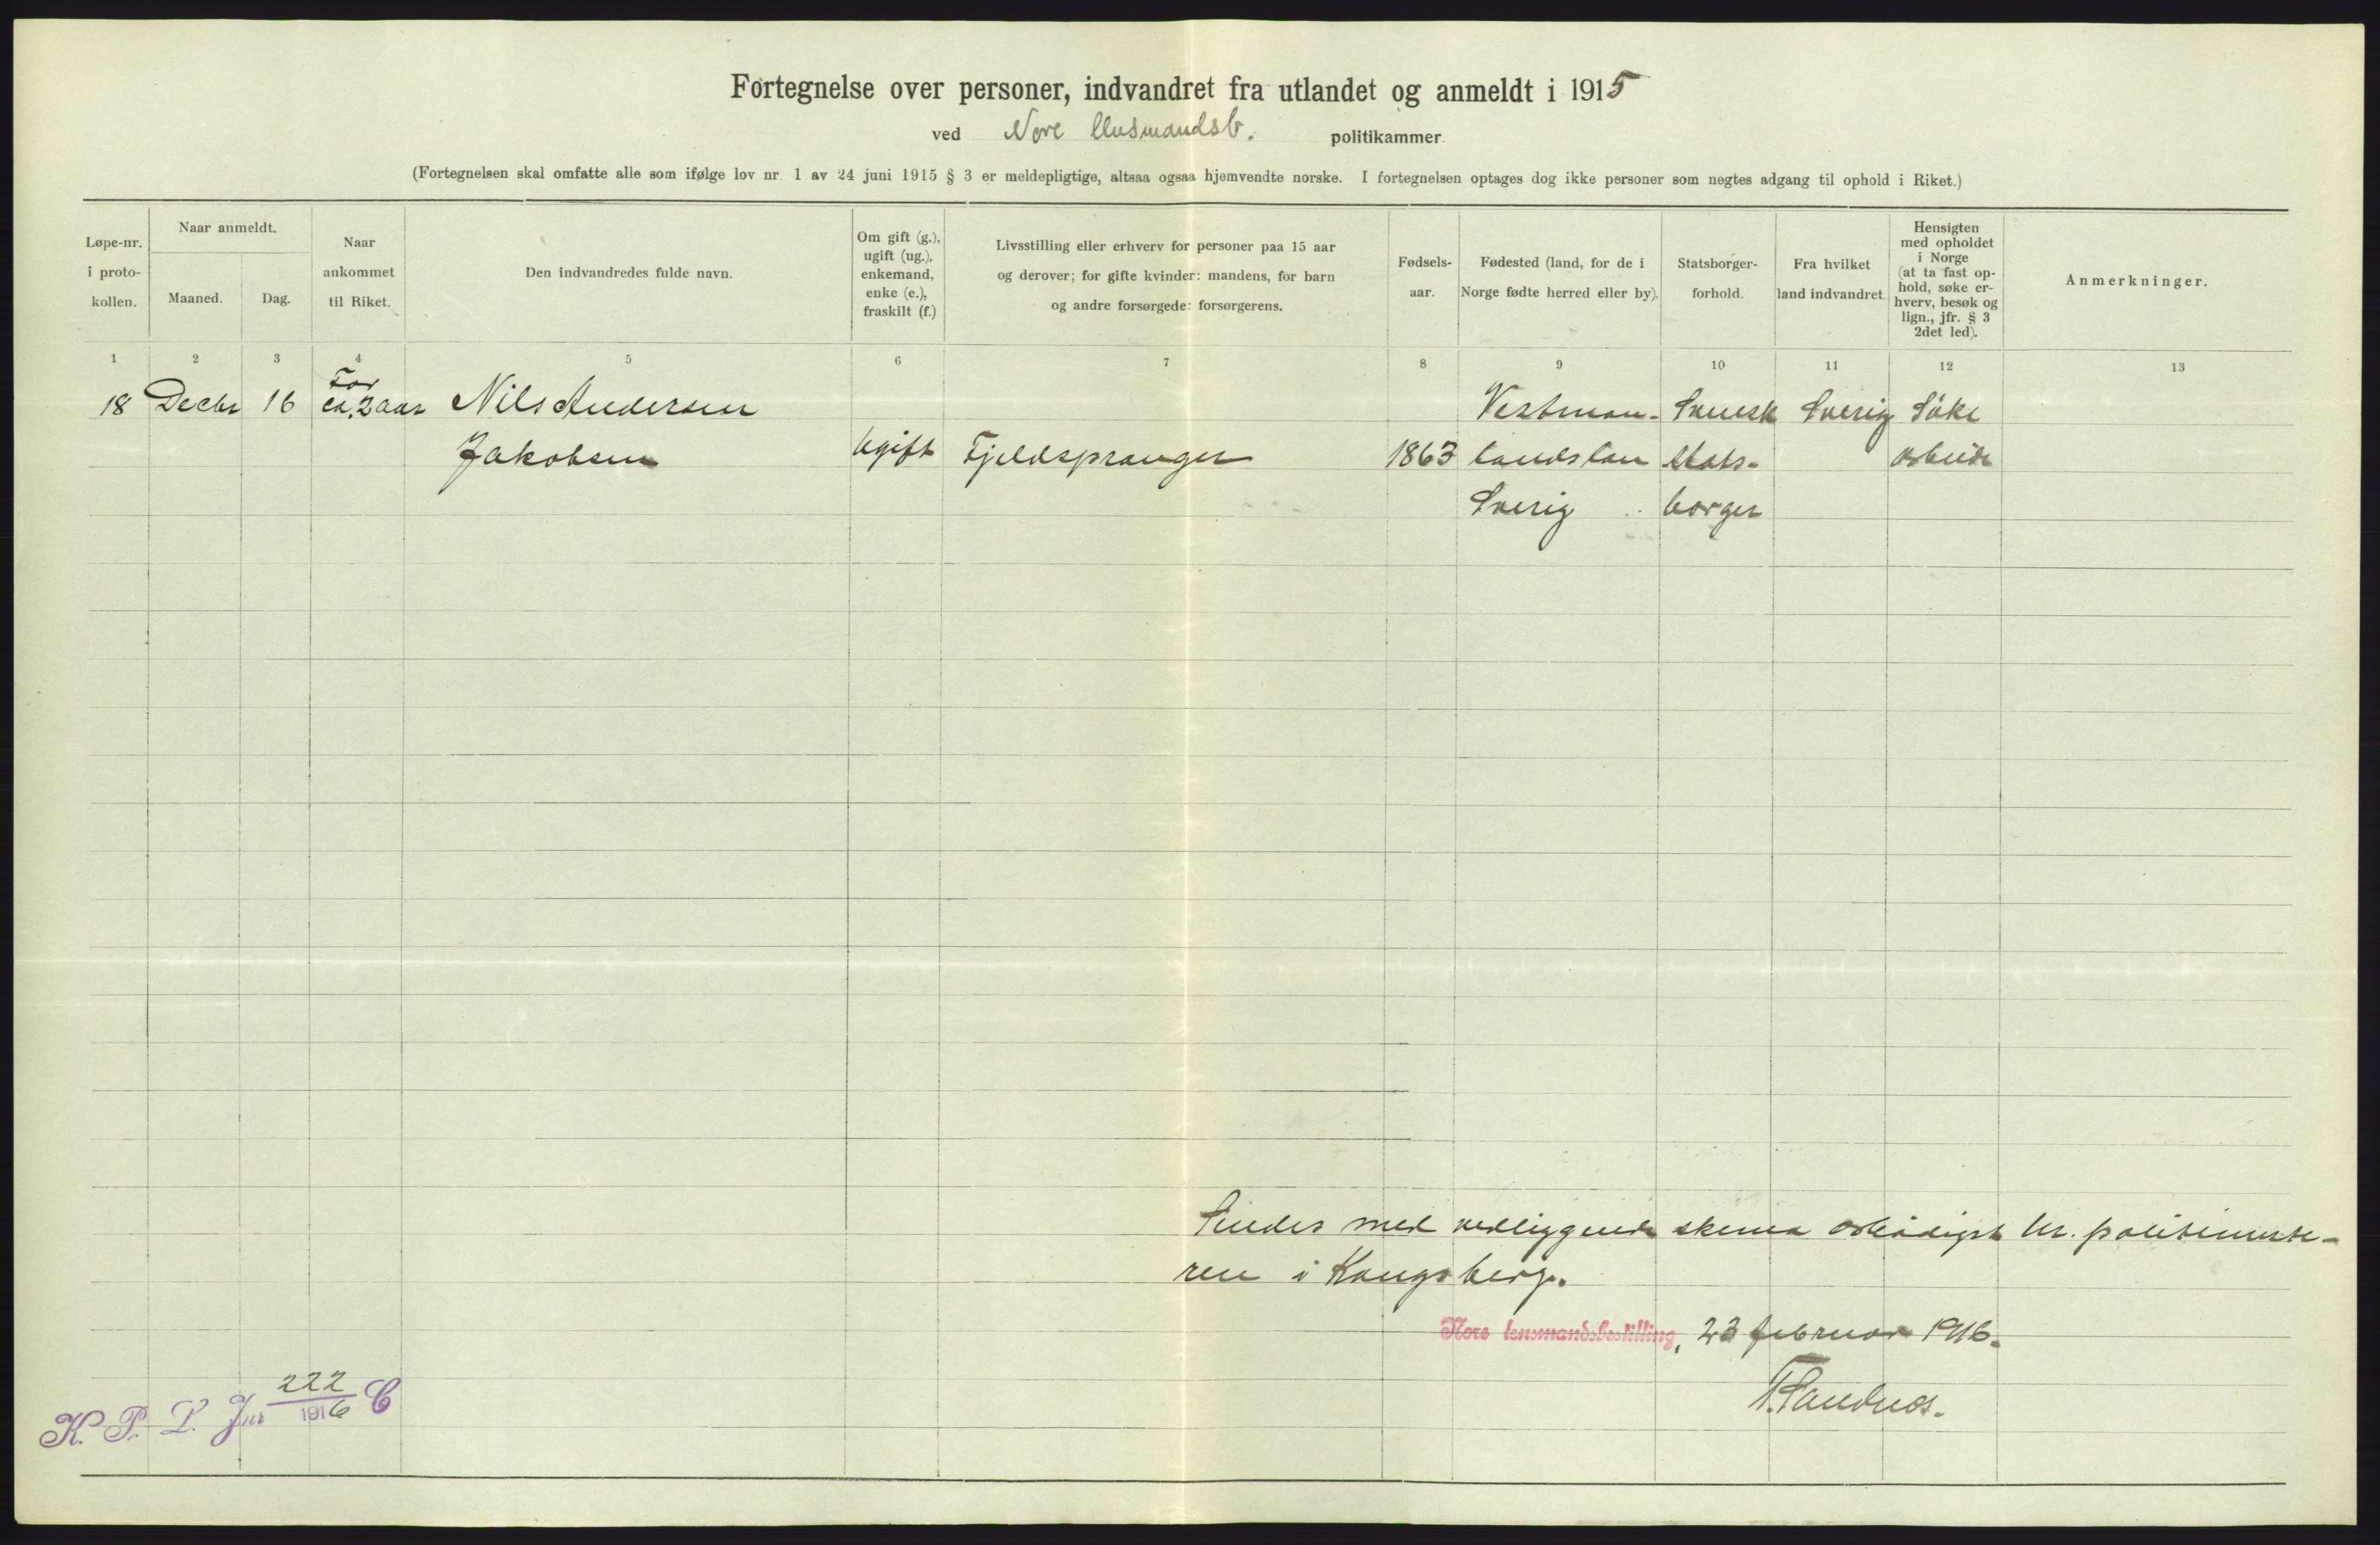 Fortegnelse over personer, indvandret fra utlandet og anmeldt i 1915
ved Nore lensmandsb. politikammer
(Fortegnelsen skal omfatte alle som ifølge lov nr. 1 av 24 juni 1915 § 3 er meldepligtige, altsaa ogsaa hjemvendte norske. I fortegnelsen optages dog ikke personer som negtes adgang til ophold i Riket.)
Løpe-nr.
i proto-
kollen.
Naar anmeldt.
Maaned.
Dag.
Naar
ankommet
til Riket.
Den indvandredes fulde navn.
Om gift (g.),
ugift (ug.),
enkemand,
enke (e.),
fraskilt (f.)
Livsstilling eller erhverv for personer paa 15 aar
og derover; for gifte kvinder: mandens, for barn
og andre forsørgede: forsørgerens.
Fødsels-
aar.
Fødested (land, for de i
Norge fødte herred eller by).
Statsborger-
forhold.
Fra hvilket
land indvandret.
Hensigten
med opholdet
i Norge
(at ta fast op-
hold, søke er-
hverv, besøk og
lign., jfr. § 3
2det led).
Anmerkninger.
1 2 3 4 5 6 7 8 9 10 11 12 13
For
18 Decbr 16 ca. 2 aar Nils Andersen Vestman- Svensk Sverig Söke
Jakobsen Ugift Fjeldsprænger 1863 landslän stats- arbeide
Sverig borger
Sendes med vedliggende skema ærbödigst hr. politimeste-
ren i Kongsberg.
Nore lensmandsbestilling, 23 februar 1916.
T. Sandnes.
K. P. L. Jnr 222/1916 C